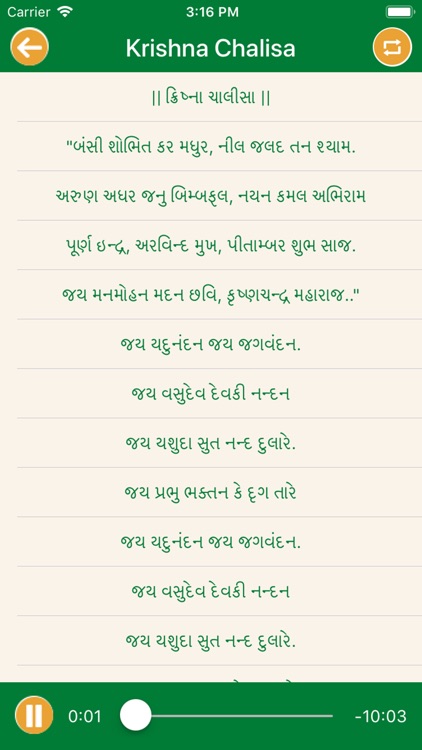 Carrier 3:16 PM
Krishna Chalisa
|| ક્રિષ્ના ચાલીસા ||
"બંસી શોભિત કર મધુર, નીલ જલદ તન શ્યામ.
અરુણ અધર જનુ બિમ્બફલ, નયન કમલ અભિરામ
પૂર્ણ ઇન્દ્ર, અરવિન્દ મુખ, પીતામ્બર શુભ સાજ.
જય મનમોહન મદન છવિ, કૃષ્ણચન્દ્ર મહારાજ.."
જય યદુનંદન જય જગવંદન.
જય વસુદેવ દેવકી નન્દન
જય યશુદા સુત નન્દ દુલારે.
જય પ્રભુ ભક્તન કે દૃગ તારે
જય યદુનંદન જય જગવંદન.
જય વસુદેવ દેવકી નન્દન
જય યશુદા સુત નન્દ દુલારે.
0:01 -10:03